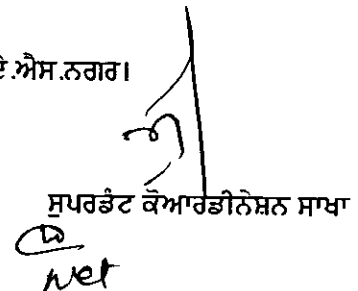 ਏ.ਐਸ.ਨਗਰ।
ਸੁਪਰਡੰਟ ਕੋਆਰਡੀਨੇਸ਼ਨ ਸਾਖਾ